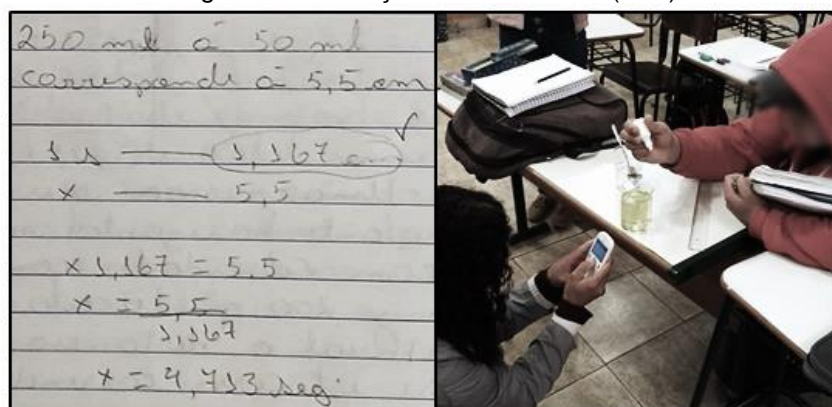 250 ml a 50 ml
corresponde á 5,5 cm
1 s — 1,167 cm
x — 5,5
x 1,167 = 5,5
x = 5,5
1,167
x = 4,713 seg.